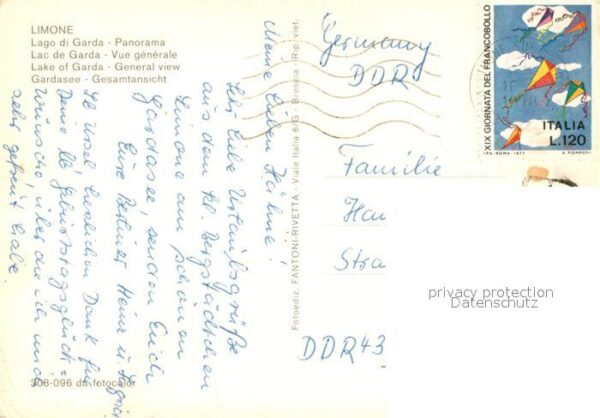 LIMONE
Lago di Garda - Panorama
Lac de Garda - Vue générale
Lake of Garda - General view
Gardasee - Gesamtansicht
Meine Lieben
Sehr liebe Urlaubsgrüße
aus dem kl. Bergstädtchen
Limone am schönen
Gardasee, senden Euch
Eure Berliner Heinz u.
herzlichen Dank für
Deine lb. Geburtstagsglück=
wünsche, über die ich mich
sehr gefreut habe.
308-096 ds fotocolor
Fotoediz. FANTONI-RIVETTA - Viale Italia 6/G - Brescia - Rip. viet.
Germany
DDR
XIX GIORNATA DEL FRANCOBOLLO
ITALIA
L.120
I.P.S.-ROMA-1977
Familie
Han
Stra
DDR 43
privacy protection
Datenschutz